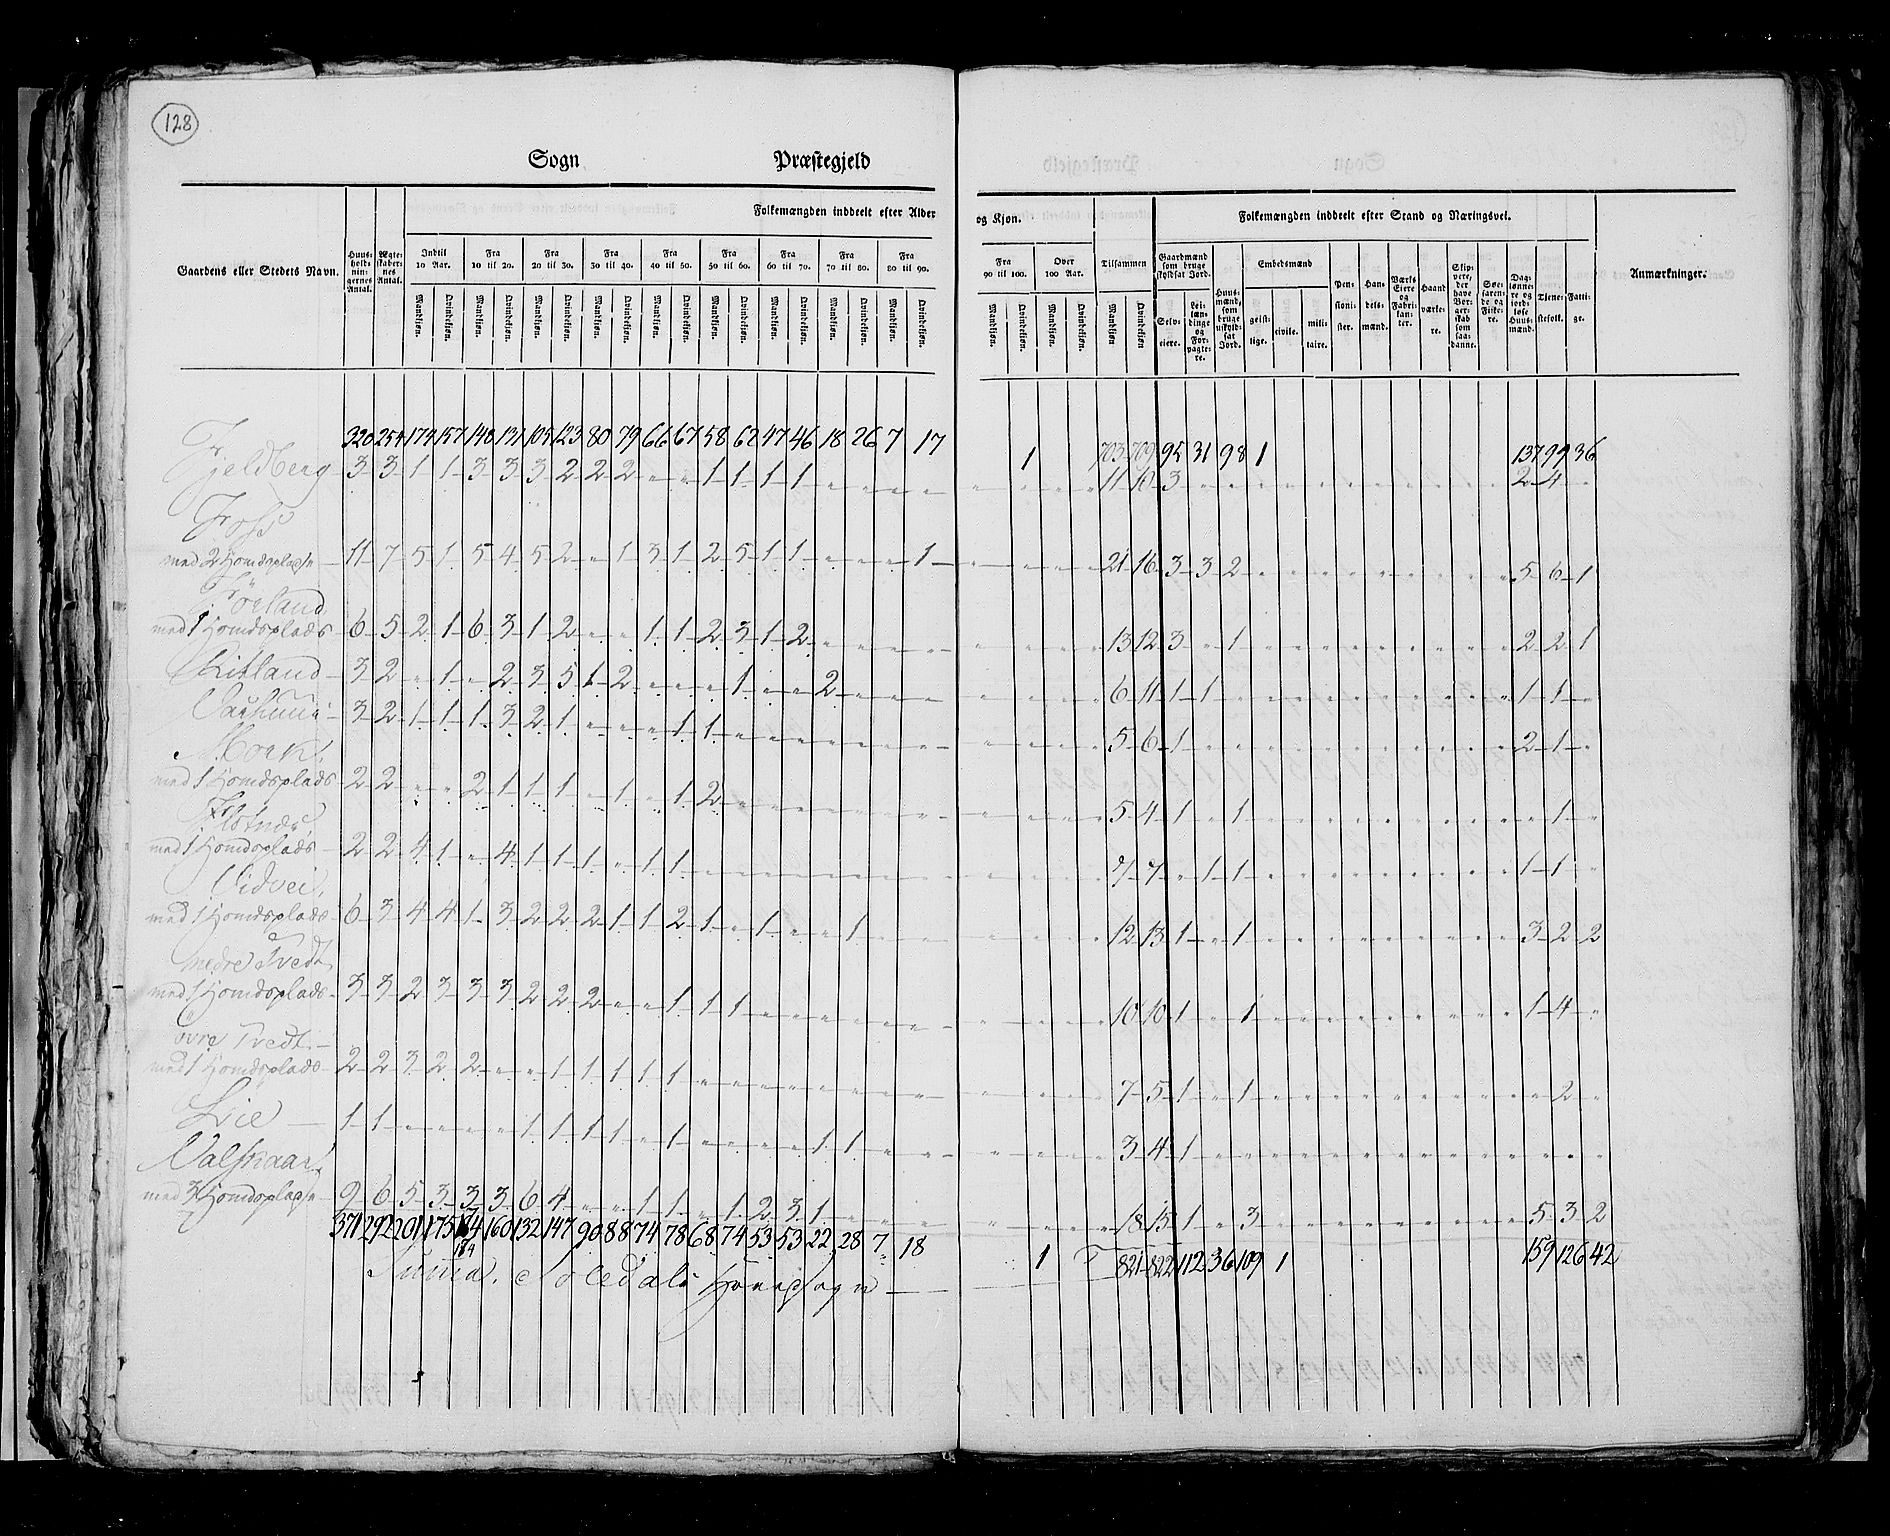 128
Sogn Præstegjeld
Folkemængden inddeelt efter Alder og Kjøn. Folkemængden inddeelt efter Stand og Næringsvei.
Gaardens eller Stedets Navn. Huus-holdningernes Antal. Ægteskabernes Antal. Indtil 10 Aar. Fra 10 til 20. Fra 20 til 30. Fra 30 til 40. Fra 40 til 50. Fra 50 til 60. Fra 60 til 70. Fra 70 til 80. Fra 80 til 90. Fra 90 til 100. Over 100 Aar. Tilsammen Gaardmænd som bruge skyldsat Jord. Embedsmænd Anmærkninger.
Mandkjøn. Qvindekjøn. Mandkjøn. Qvindekjøn. Mandkjøn. Qvindekjøn. Mandkjøn. Qvindekjøn. Mandkjøn. Qvindekjøn. Mandkjøn. Qvindekjøn. Mandkjøn. Qvindekjøn. Mandkjøn. Qvindekjøn. Mandkjøn. Qvindekjøn. Mandkjøn. Qvindekjøn. Mandkjøn. Qvindekjøn. Mandkjøn Qvindekjøn Selveiere. Leilændinge og Forpagtere. Huusmænd, som bruge uskyldsat Jord. geistlige. civile. militaire. Pensionister. Handelsmænd. Værks Eiere og Fabrikanter. Haandværkere. Skippere, der have Borgerskab som saadanne. Søefarende og Fiskere. Daglønnere og jordløse Huusmænd. Tjenestefolk. Fattige.
320 254 174 157 148 131 105 123 80 79 66 67 58 62 47 46 18 26 7 17 1 703 709 95 31 98 1 137 99 36
Fjeldberg 3 3 1 1 3 3 3 2 2 2 " " 1 1 1 1 " " " " " " " " 11 10 3 " " " " " " " " " " " 2 4 "
Foss
med 2 Huusdspladse 11 7 5 1 5 4 5 2 " 1 3 1 2 5 1 1 " " " 1 " " " " 21 16 3 3 2 " " " " " " " " " 5 6 1
Førland
med 1 Huusdsplads 6 5 2 1 6 3 1 2 " " 1 1 2 3 1 2 " " " " " " " " 13 12 3 " 1 " " " " " " " " " 2 2 1
Ritland 3 2 " 1 " 2 3 5 1 2 " " " 1 " " 2 " " " " " " " 6 11 1 1 " " " " " " " " " " 1 1 "
3 2 1 1 1 3 2 1 " " " 1 1 " " " " " " " " " " " 5 6 1 " " " " " " " " " " " 2 1 "
Mork
med 1 Huusdsplads 2 2 " " 2 1 1 1 " 1 " 1 2 " " " " " " " " " " " 5 4 1 " 1 " " " " " " " " " " 1 "
med 1 Huusdsplads 2 2 4 1 " 4 1 1 1 " 1 1 " " " " " " " " " " " " 7 7 " 1 1 " " " " " " " " " 1 1 "
Vidvei
med 1 Huusdsplads 6 3 4 4 1 3 2 2 2 1 1 2 1 " 1 " " 1 " " " " " " 12 13 1 " 1 " " " " " " " " " 3 2 2
nedre Tvedt
med 1 Huusdsplads 3 3 2 3 3 3 2 2 2 " " 1 1 1 " " " " " " " " " " 10 10 1 " 1 " " " " " " " " " 1 4 "
øvre Tvedt
med 1 Huusdsplads 2 2 3 2 2 " " 1 1 1 1 1 " " " " " " " " " " " " 7 5 1 " 1 " " " " " " " " " " 2 "
Lie 1 1 " " " " 1 1 1 1 " 1 " " " " 1 1 " " " " " " 3 4 1 " " " " " " " " " " " " " "
Valskaar
med 3 Huusdspladse 9 6 5 3 3 3 6 4 " " 1 1 " 1 2 3 1 " " " " " " " 18 15 1 " 3 " " " " " " " " " 5 3 2
371 292 201 175 174 160 132 147 90 88 74 78 68 74 53 53 22 28 7 18 1 821 822 112 36 109 1 159 126 42
174
Summa. Hovedsogn